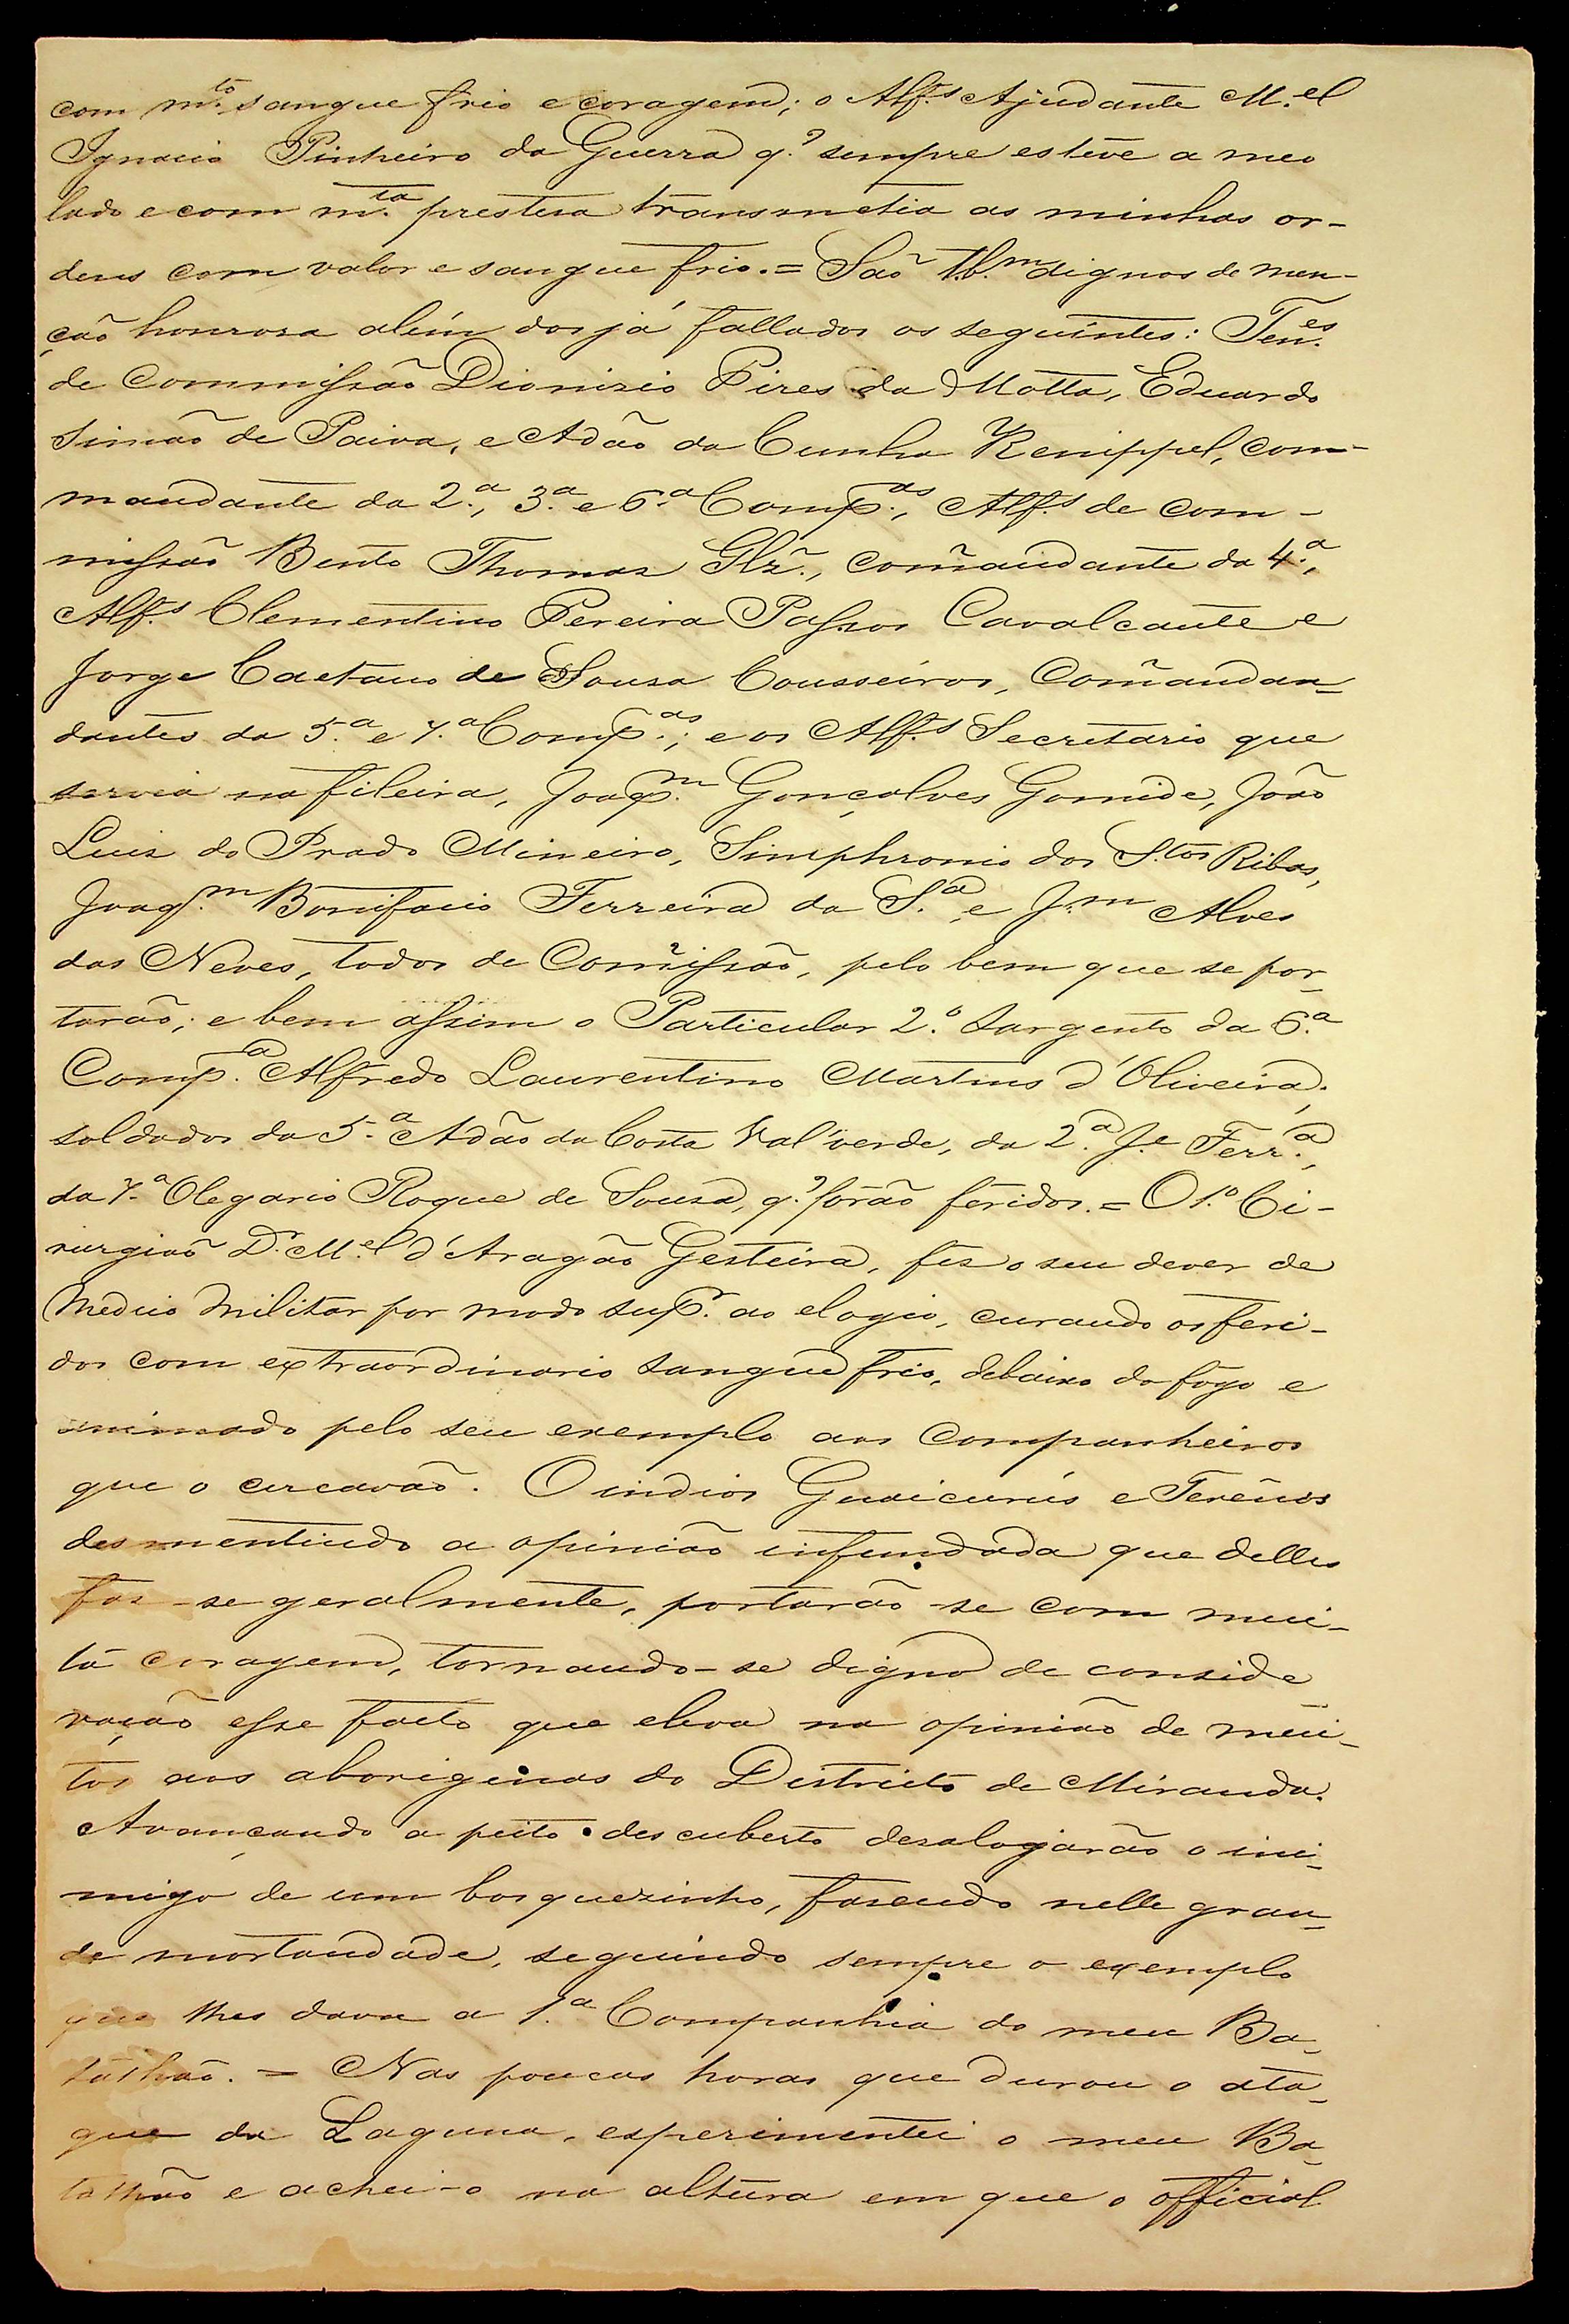 com m.to sangue frio e coragem; o Alf.s Ajudante M.el
Ignacio Pinheiro da Guerra q.' sempre esteve a meo
lado e com m.ta prestesa transmetia as minhas or-
dens com valor e sangue frio. = Saõ tb.m dignos de men-
ção honrosa além dos já fallados os seguintes: Ten.es
de Commissão Dionizio Pires da Motta, Eduardo
Simão de Paiva, e Adão da Cunha Kenippel, com-
mandante da 2.a, 3.a e 6.a Comp.as, Alf.s de com-
missão Bento Thomaz Glz̃., com̃andante da 4.a,
Alf.s Clementino Pereira Passos Cavalcante e
Jorge Caetano de Sousa Cousseiros, Com̃andan-
dantes da 5.a e 7.a Comp.as; e os Alf.s Secretario que
servia na fileira, Joaq.m Gonçalves Gomide, João
Luis do Prado Mineiro, Simphronio dos S.tos Ribas,
Joaq.m Bonifacio Ferreira da S.a e J.m Alves
das Neves, todos de Com̃issão, pelo bem que se por-
tarão; e bem assim o Particular 2.o Sargento da 6.a
Comp.a Alfredo Laurentino Martins d'Oliveira,
soldados da 5.a Adão da Costa Val verde, da 2.a J.e Ferr.a,
da 7.a Olegario Roque de Sousa, q.' forão feridos. = O 1.o Ci-
rurgiaõ D.r M.el d'Aragão Gesteira, fes o seu dever de
Medico Militar por modo sup.r ao elogio, curando os feri-
dos com extraordinario sangue frio, debaixo do fogo e
animado pelo seu exemplo aos Companheiros
que o cercavaõ. O indios Guaicurús e Terênos
desmentindo a opinião infundada que delles
fas-se geralmente, portarão-se com mui-
ta coragem, tornando-se digno de conside
ração esse facto que eleva na opinião de mui-
tos aos aborigenas do Districto de Miranda.
Avançando a peito descuberto desalojarão o ini-
migo de um bosquezinho, fasendo nelle gran-
de mortandade, seguindo sempre o exemplo
que lhes dava a 1.a Companhia do meu Ba-
talhaõ. = Nas poucas horas que durou o ata-
que da Laguna, experimentei o meu Ba-
talhão e achei-o na altura em que o official